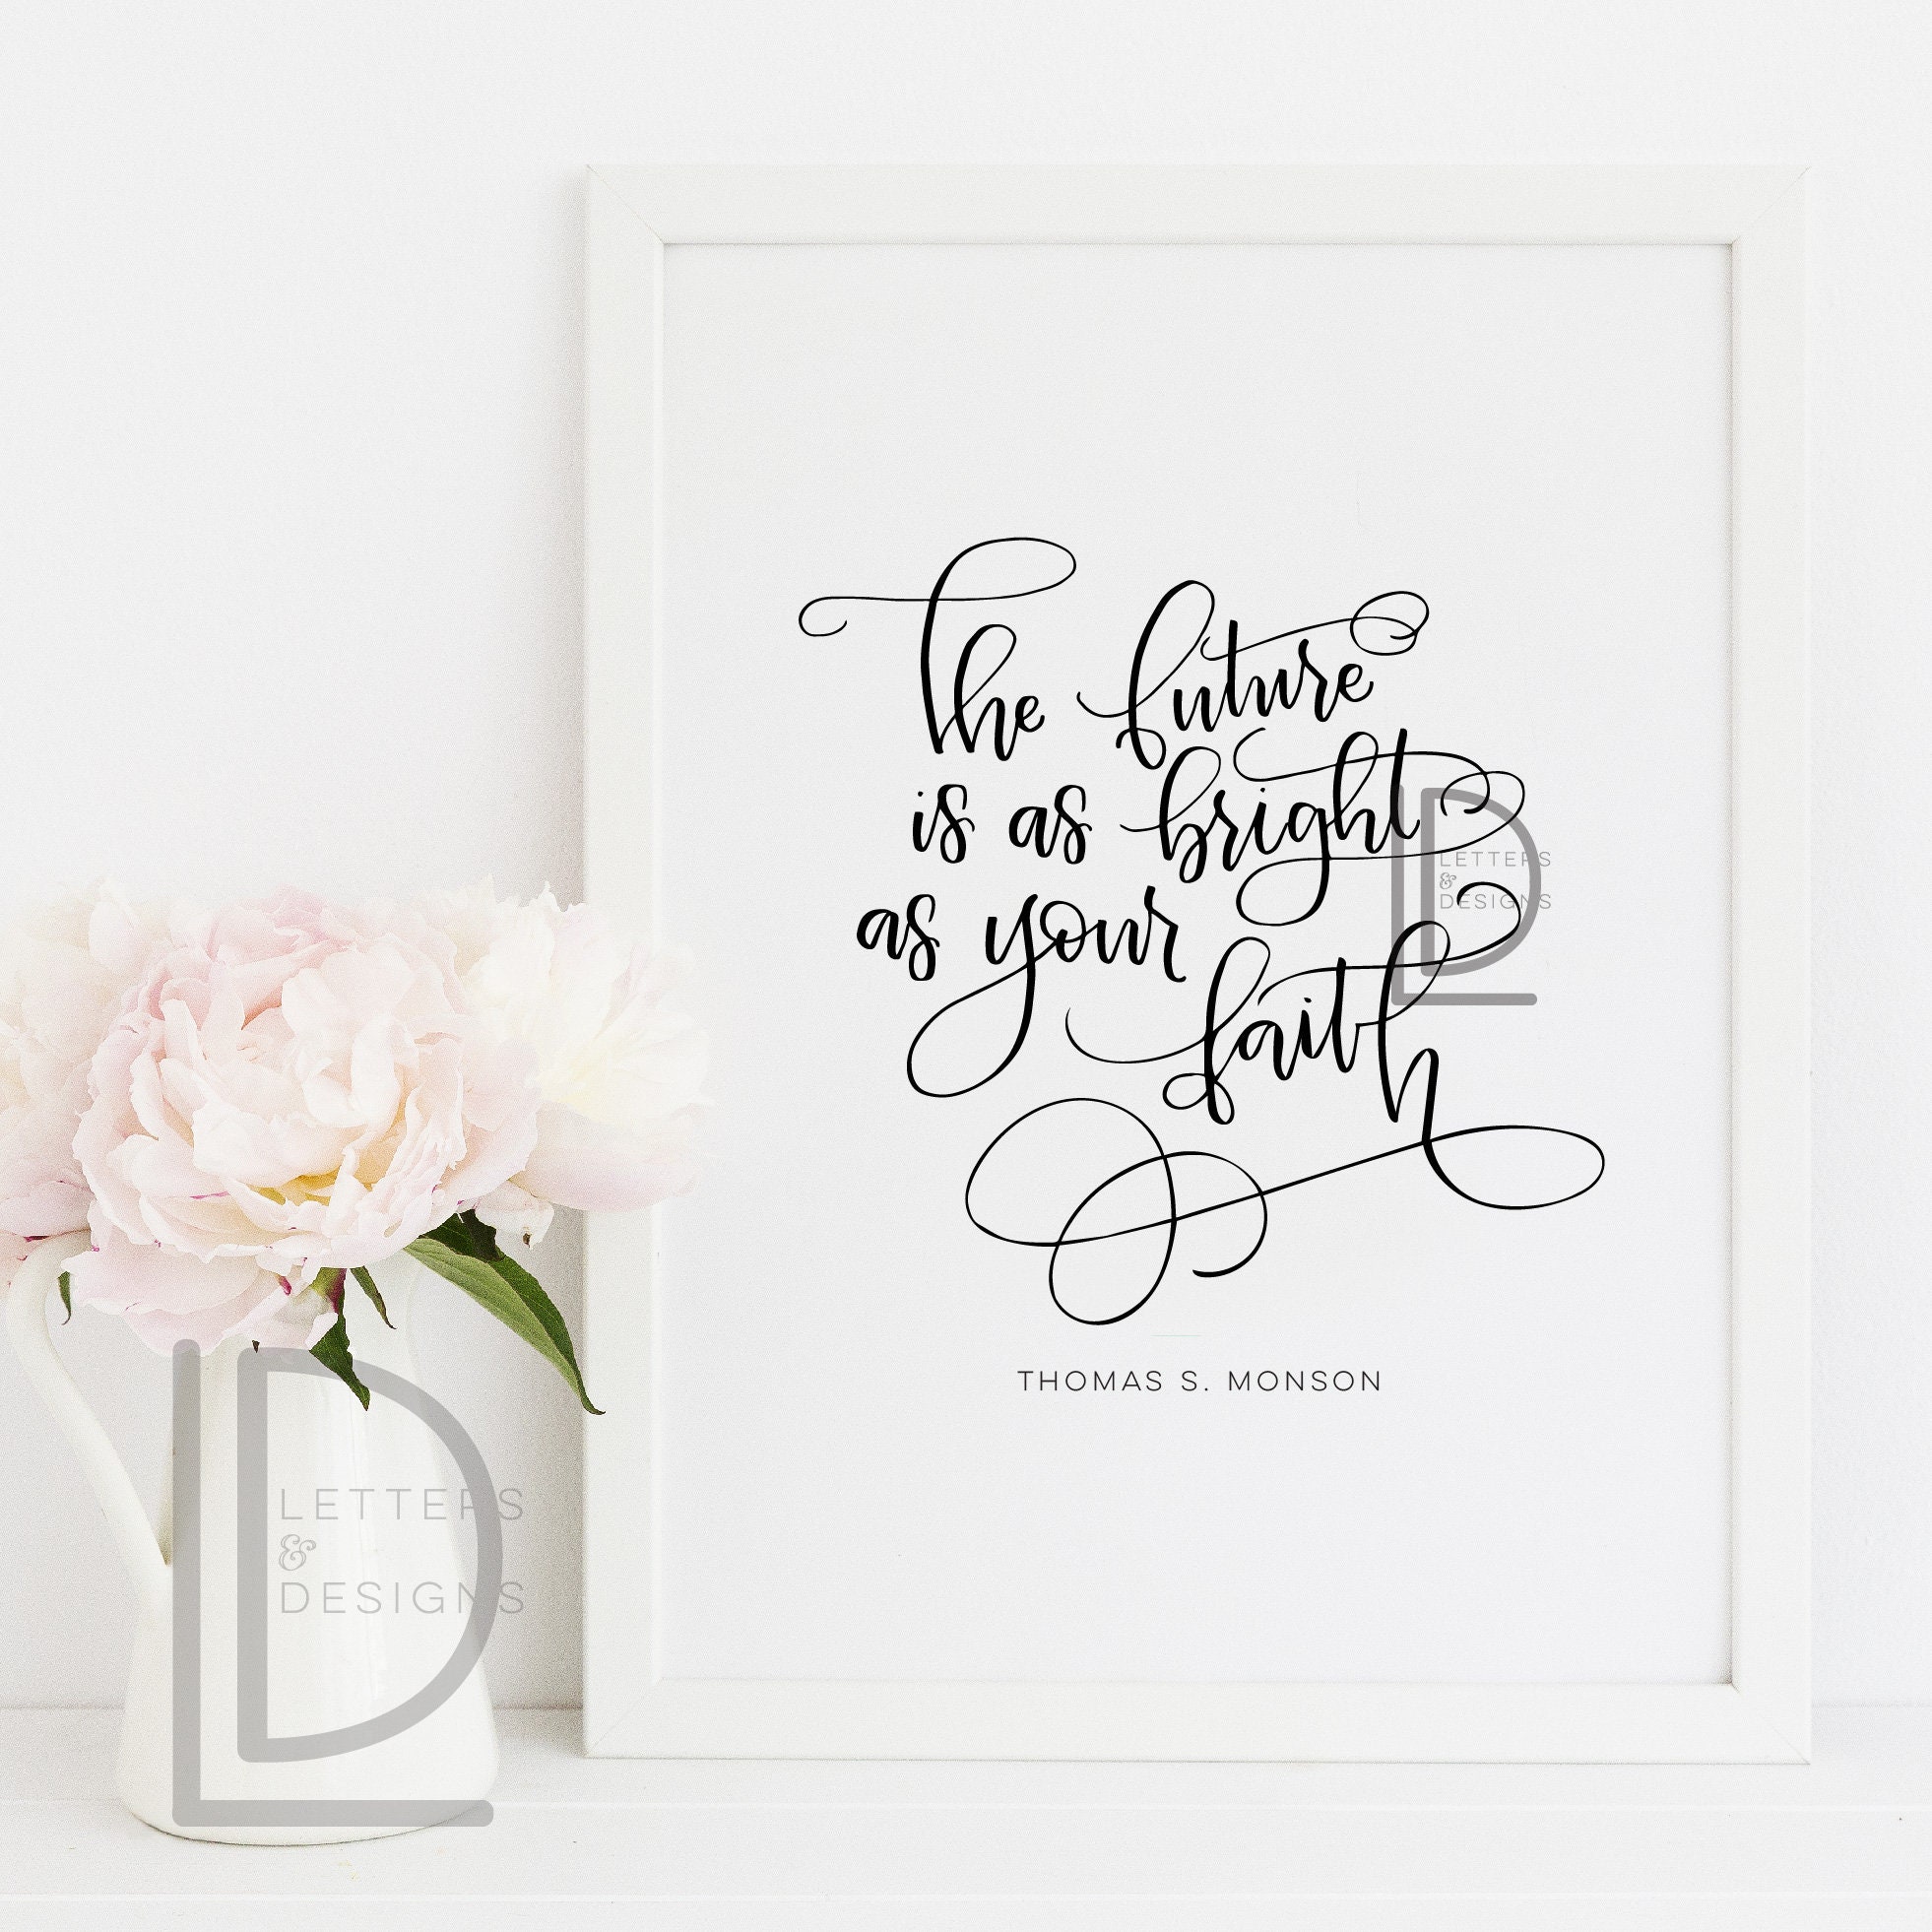 The future
is as bright
as your
faith
THOMAS S. MONSON
LD
LETTERS
&
DESIGNS
LD
LETTERS
&
DESIGNS